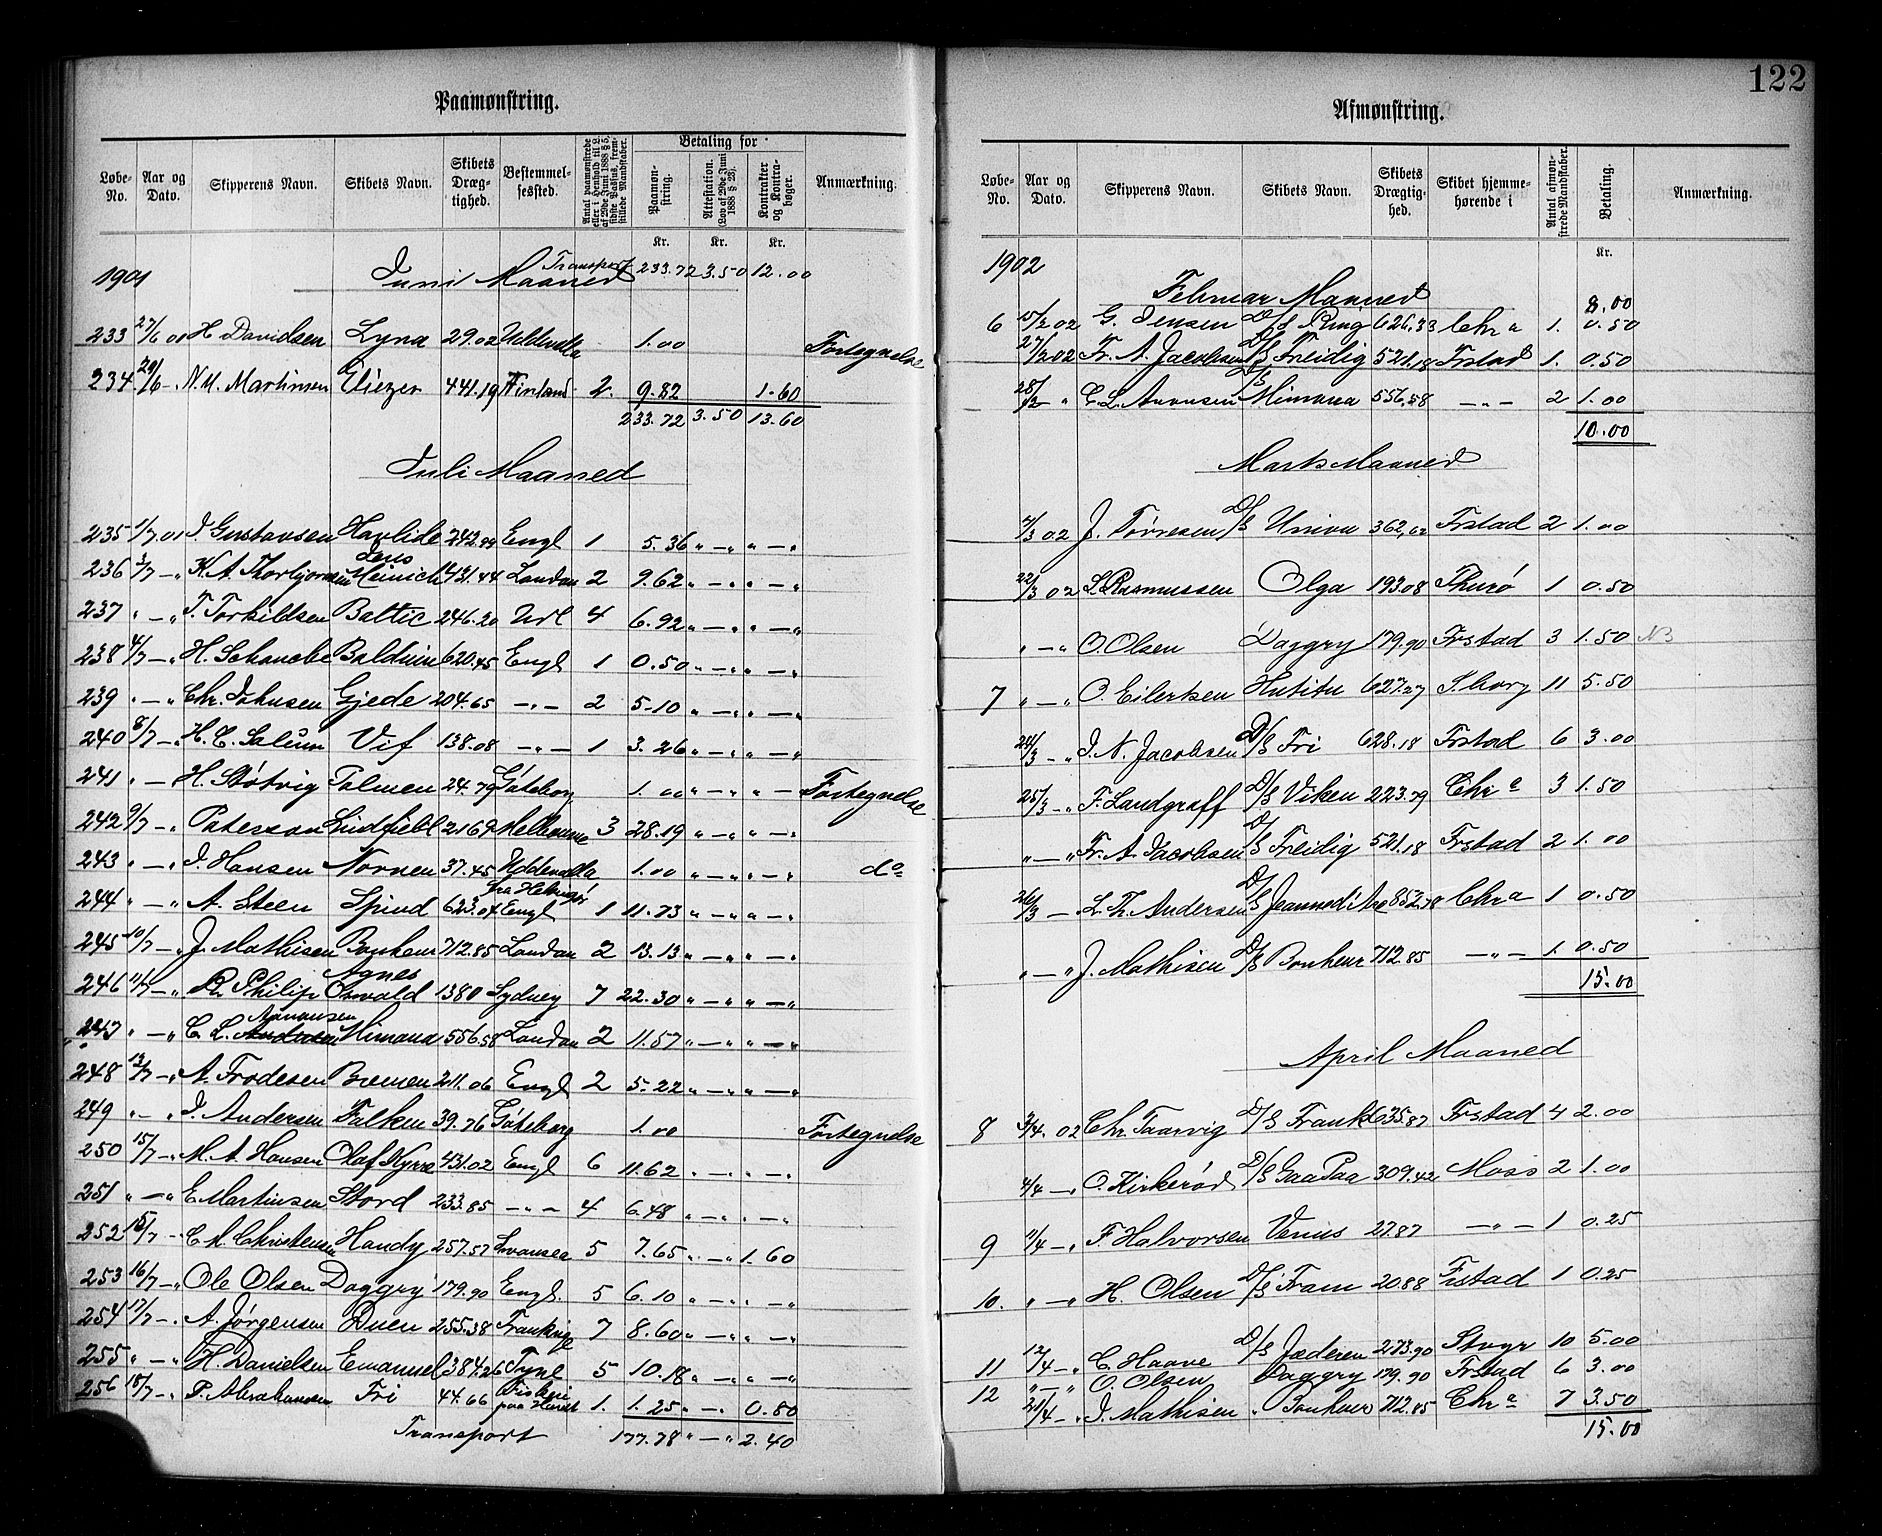 122
Paamønstring.
Løbe-No. Aar og Dato. Skipperens Navn. Skibets Navn. Skibets Dræg-tighed. Bestemmel-sessted. Antal paamønstrede eller i Henhold til L. af 29de Juni 1888 § 5, sidste Passus, frem-stillede Mandskaber. Betaling for Paamøn-string. Attestation. (Lov af 29de Juni 1888 § 23). Kontrakter og Kontra-bøger. Anmærkning.
Kr. Kr. Kr.
1901 Juni Maaned Transport 233.72 3.50 12.00
233 27/6 01 H. Davidsen Lyna 29.02 Uddevalla 1.00 Fortegnelse
234 29/6 - N. M. Martinsen Eliezer 441.19 Finland 2. 9.82 1.60
233.72 3.50 13.60
Juli Maaned
235 1/7 01 J. Gustavsen Havlide 242.99 Engl 1 5.36 " — " " — "
236 2/7 — " K. A. Thorbjørnsen Jens Meinich 431.44 London 2 9.62 " — " " — "
237 " — " T. Torkildsen Baltic 246.20 Url 4 6.92 " — " " — "
238 4/7 — " H. Schanche Balduin 620.45 Engl 1 0.50 " — " " — "
239 " — " Chr. Johnsen Gjede 204.65 — " — 2 5.10 " — " " — "
240 8/7 — " H. C. Salum Vif 138.08 — " — 1 3.26 " — " " — "
241 " — H. Støtvig Palmen 24.79 Göteborg 1.00 " — " " — Fortegnelse
242 9/7 — " Paterson Lindfield 2169 Melbourne 3 28.19 " — " " — "
243 " — " J. Hansen Nornen 37.45 Uddevalla 1.00 " — " " — " do
244 " — " A. Steen Spind 623.04 fra Helsingør Engl 1 11.73 " — " " — "
245 10/7 — " J. Mathisen Bonheur 712.85 London 2 13.13 " — " " — "
246 11/7 — " R. Philip Agnes Oswald 1380 Sydney 7 22.30 " — " " — "
247 " — " C. L. Andersen Aavansen Mimona 556.58 London 2 11.57 " — " " — "
248 13/7 — " A. Frodesen Bremen 211.06 Engl 2 5.22 " — " " — "
249 " — " J. Andersen Falken 39.76 Göteborg 1.00 Fortegnelse
250 15/7 — " M. A. Hansen Olaf Kyrre 431.02 Engl 6 11.62 " — " " — "
251 " — " E. Martinsen Stord 233.85 — " — 4 6.48 " — " " — "
252 15/7 — " C. M. Christensen Handy 257.57 Swansea 5 7.65 " — " 1.60
253 16/7 — " Ole Olsen Daggry 179.90 Engl. 5 6.10 " — " " — "
254 17/7 — " A. Jørgensen Duen 255.38 Frankrige 7 8.60 " — " " — "
255 " — " H. Danielsen Emanuel 384.26 Tyne 5 10.18 " — " " — "
256 18/7 — " P. Abrahamsen Fri 44.66 Fiskeri paa Havet 1. 1.25 " — " 0.80
Transport 177.78 " — " 2.40
Afmønstring.
Løbe-No. Aar og Dato. Skipperens Navn. Skibets Navn. Skibets Drægtig-hed. Skibet hjemme-hørende i Antal afmøn-strede Mandskaber. Betaling. Anmærkning.
Kr.
1902
Februar Maaned 8.00
6 15/2 02 G. Jensen D/S Ring 626.33 Chra 1. 0.50
27/2 02 Fr. A. Jacobsen D/S Freidig 521.18 Frstad 1. 0.50
28/2 — " C. L. Aavansen D/S Mimona 556.58 — " — 2 1.00
10.00
Marts Maaned
7/3 02 J. Tørresen D/S Union 362,62 Frstad 2 1.00
22/3 02 L. Rasmussen Olga 193.08 Thurø 1 0.50
" — " O. Olsen Daggry 179.90 Frstad 3 1.50 NB
7 " — " O. Eilertsen Hutitu 627.27 S.borg 11 5.50
24/3 — " J. N. Jacobsen D/S Fri 628.18 Frstad 6 3.00
25/3 — " F. Landgraff D/S Viken 223.79 Chra 3 1.50
" — " Fr. A. Jacobsen D/S Freidig 521.18 Frstad 2 1.00
26/3 — " L. Th. Andersen D/S Jeanned'Arc 852.78 Chra 1 0.50
" — " J. Mathisen D/S Bonheur 712.85 — " — 1. 0.50
15.00
April Maaned
8 3/4. 02 Chr. Taarvig D/S Frank 635.87 Frstad 4 2.00
4/4 — " O. Kirkerød D/S Gaa Paa 309.42 Moss 2 1.00
9 11/4 — " F. Halvorsen Venus 27.87 — " — 1 0.25
10. " — " H. Olsen D/S Fram 20.88 Frstad 1 0.25
11 12/4 — " C. Haave D/S Jæderen 273.90 Stvgr 10 5.00
12 " — " O. Olsen Daggry 179.90 Frstad 6 3.00
21/4 — " J. Mathisen " Bonheur 712.85 Chra 7 3.50
15.00